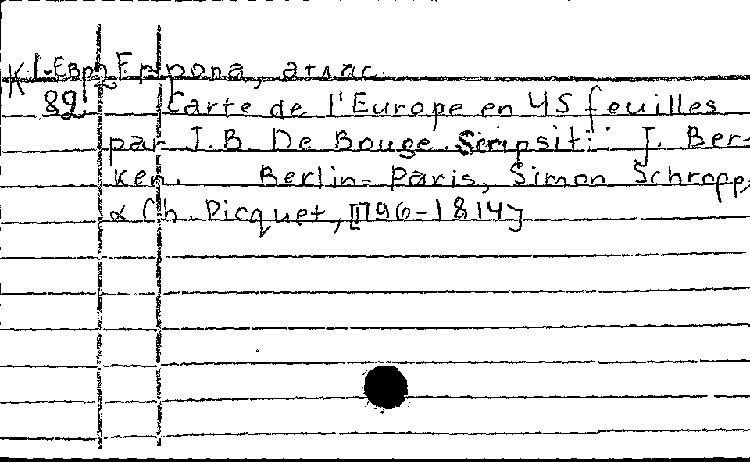 К 1-Евр Европа, атлас.
82 Carte de l'Europe en 45 feuilles
par J.B. De Bouge. Scripsit: J. Ber-
ken. Berlin-Paris, Simon Schropp,
& Ch. Picquet, [1796-1814]